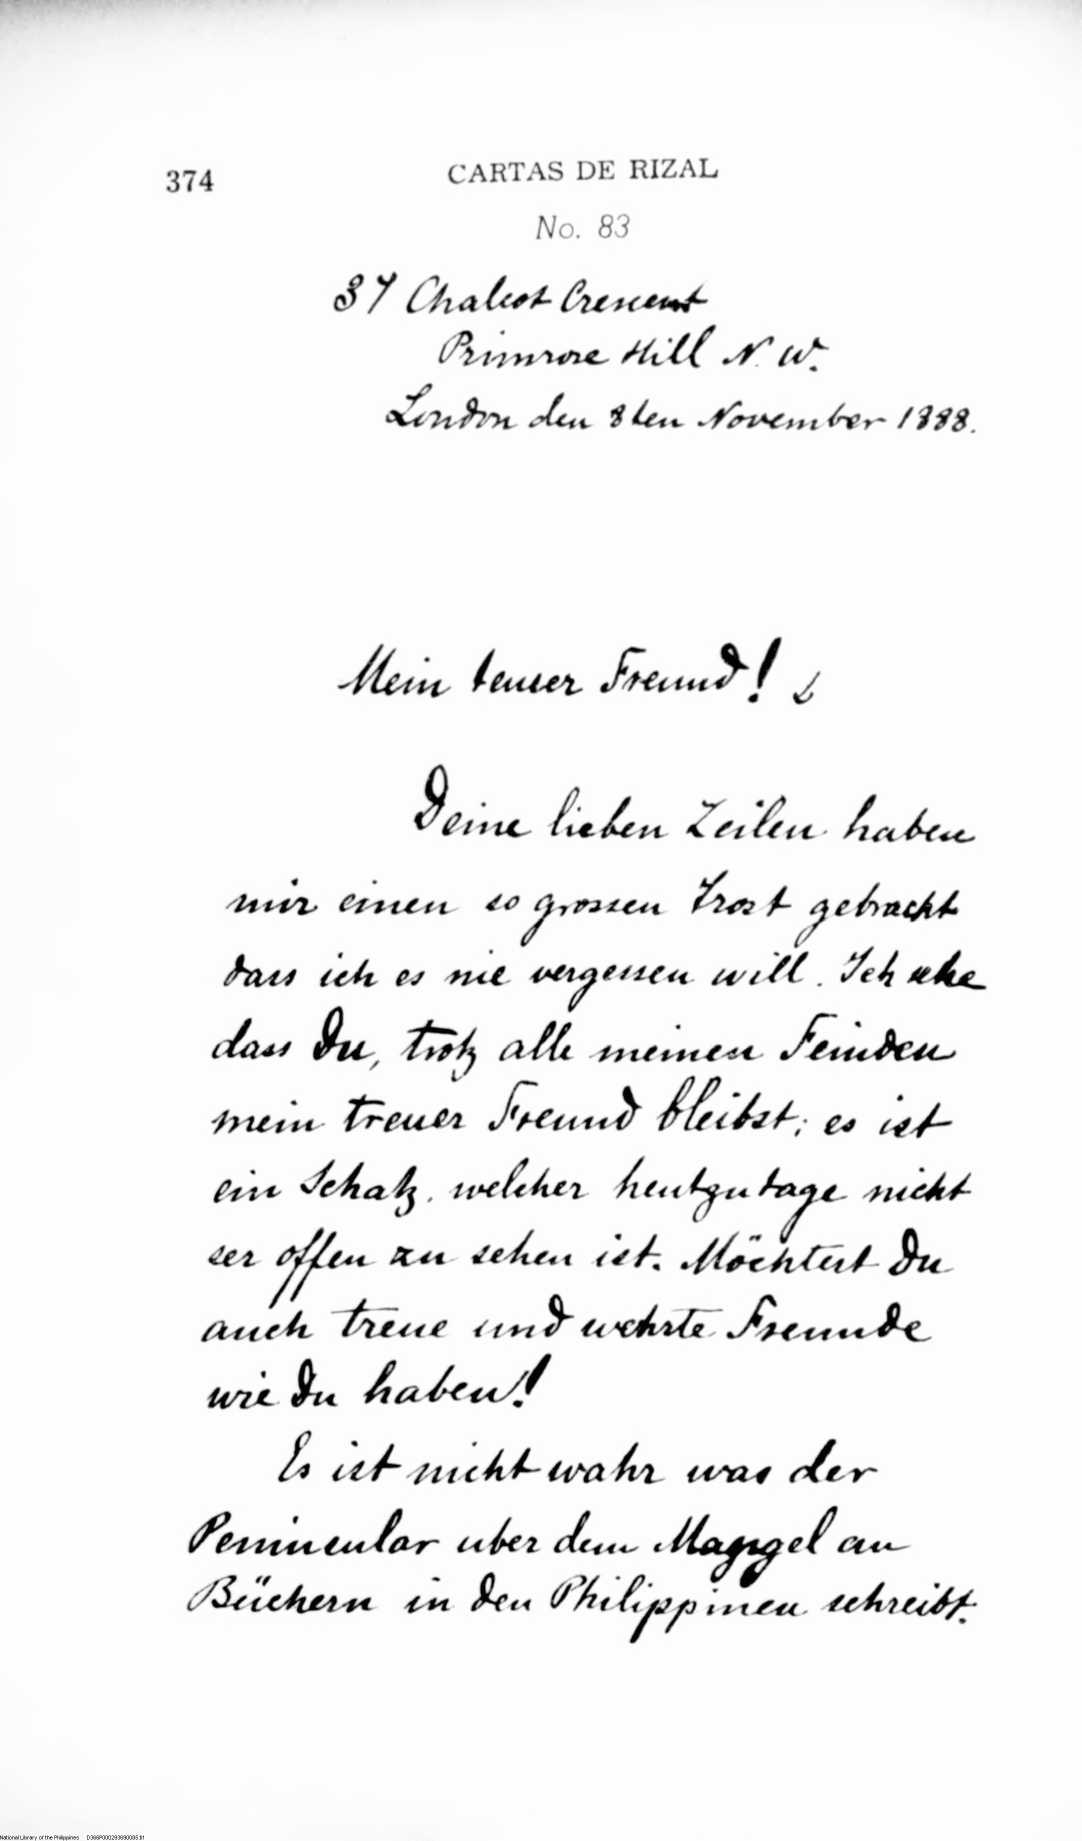 374
CARTAS DE RIZAL
No. 83
37 Chalcot Crescent
Primrose Hill N. W.
London den 8ten November 1888.
Mein teurer Freund!
Deine lieben Zeilen haben
mir einen so grossen Trost gebracht
dass ich es nie vergessen will. Ich sehe
dass Du, trotz alle meinen Feinden
mein treuer Freund bleibst; es ist
ein Schatz, welcher heutzutage nicht
ser offen zu sehen ist. Möchtest Du
auch treue und wehrte Freunde
wie Du haben!
Es ist nicht wahr was der
Peninsular uber dem Mangel an
Büchern in den Philippinen schreibt.
National Library of the Philippines